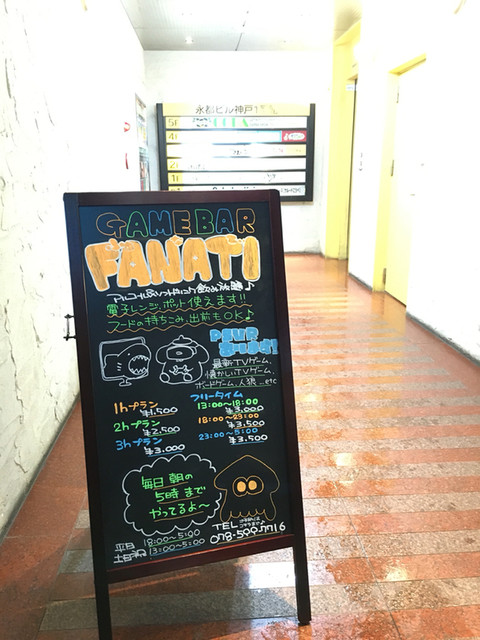 永都ビル神戸
5F
4F
GAME BAR
FANATI
アルコール&ソフトドリンク飲み放題♪
電子レンジ、ポット使えます!!
フードの持ちこみ、出前もOK♪
最新TVゲーム、
懐かしいTVゲーム、
ボードゲーム、人狼...etc
1hプラン
¥1,500
2hプラン
¥2,500
3hプラン
¥3,000
フリータイム
13:00~18:00
¥3,000
18:00~23:00
¥3,500
23:00~5:00
¥3,500
毎日 朝の
5時まで
やってるよ~
TEL
078-599-7716
平日 18:00~5:00
土日祝 13:00~5:00